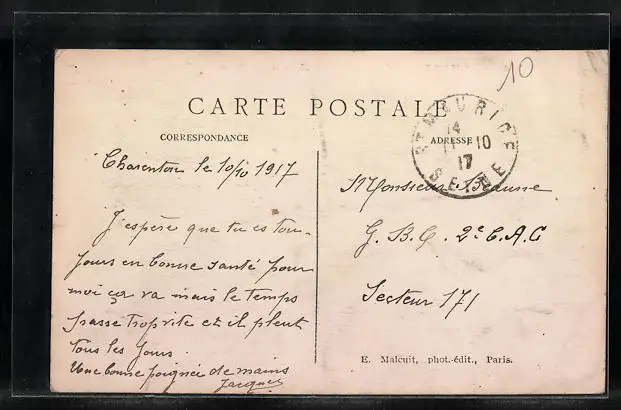 10
CARTE POSTALE
CORRESPONDANCE
ADRESSE
ST MAURICE
14
11 10
17
SEINE
Charenton le 10/10 1917
J'espère que tu es tou-
jours en bonne santé pour
moi ça va mais le temps
passe trop vite et il pleut
tous les jours.
Une bonne poignée de mains
Jacques
Monsieur
G. B. C. 2e C. A. C
Secteur 171
E. Malcuit, phot.-édit., Paris.